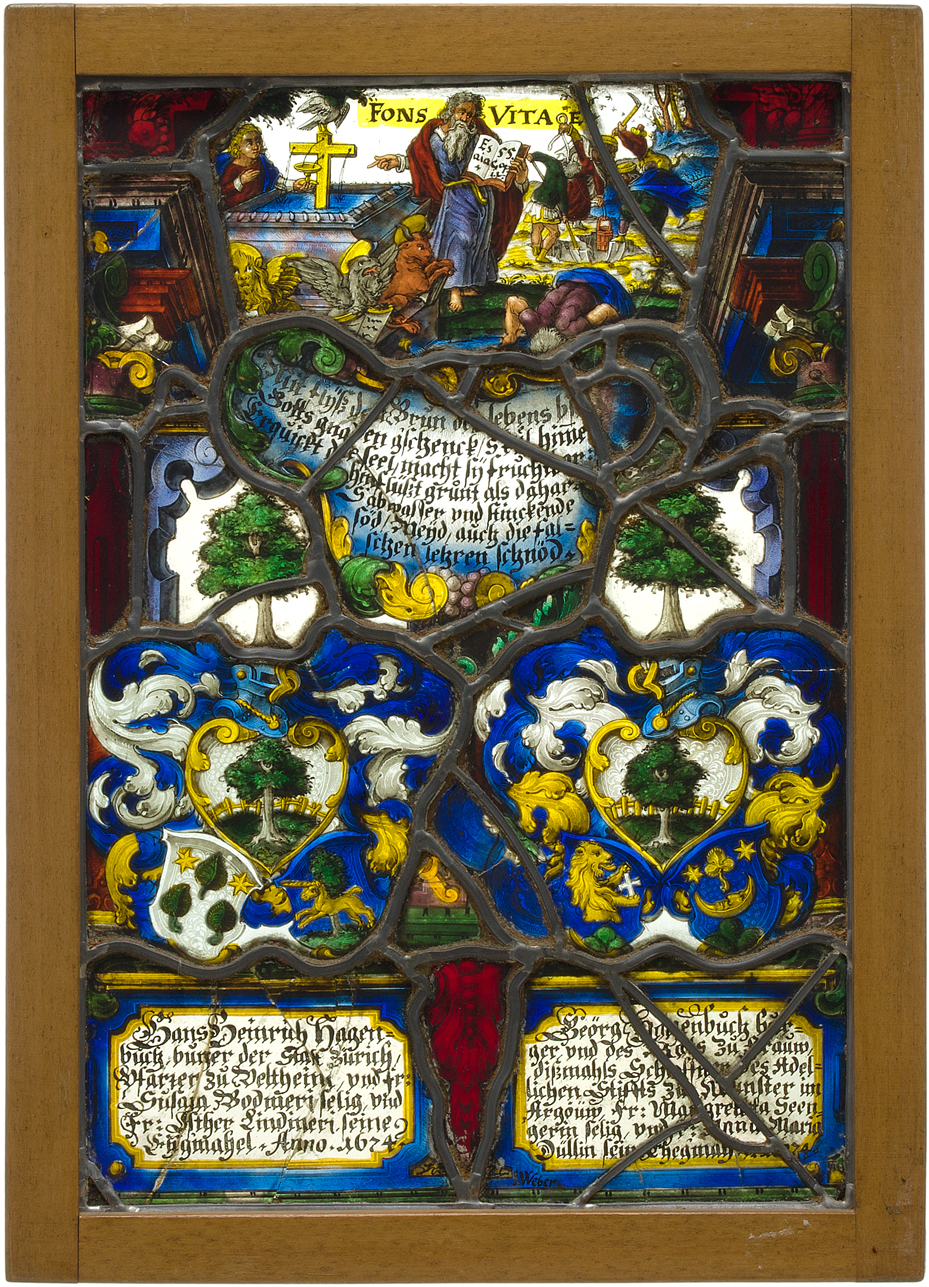 FONS VITAE
Es 55
aia Ca
der Brun des lebens
Gotts gnaden gschenck /
Erquickt seel / macht sy
grünt als dahar
wasser vnd stinckende
söd / Meyd / auch die fal=
schen lehren schnöd.
Hans Heinrich Hagen=
buch, burger der Statt Zürich /
Pfarrer zu Veltheim, vnd fr:
Susaña Bodmeri selig, vnd
Fr: Esther Lindineri seine
Ehgmahel. Anno. 1674
Geörg Hagenbuch bur=
ger vnd des zu
dißmahls Schaffner des Adel=
lichen Stiffts zu Münster im
Argouw, Fr: Margretha Seen
gerin selig vnd Maria
Dullin sein Ehegmahl
Weber